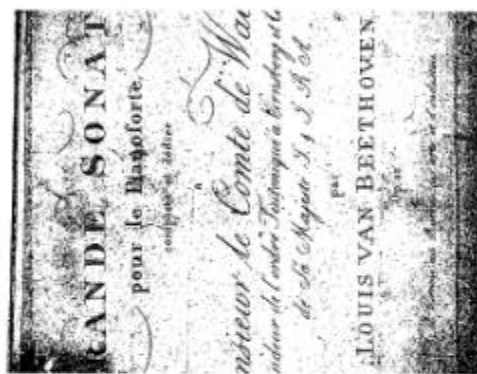 RANDE SONAT
pour le Pianoforte,
composée et dédiée
à
nsieur le Comte de Wal
deur de l'ordre Teutonique à
de Sa Majesté I. & I. R. A.
par
LOUIS VAN BEETHOVEN